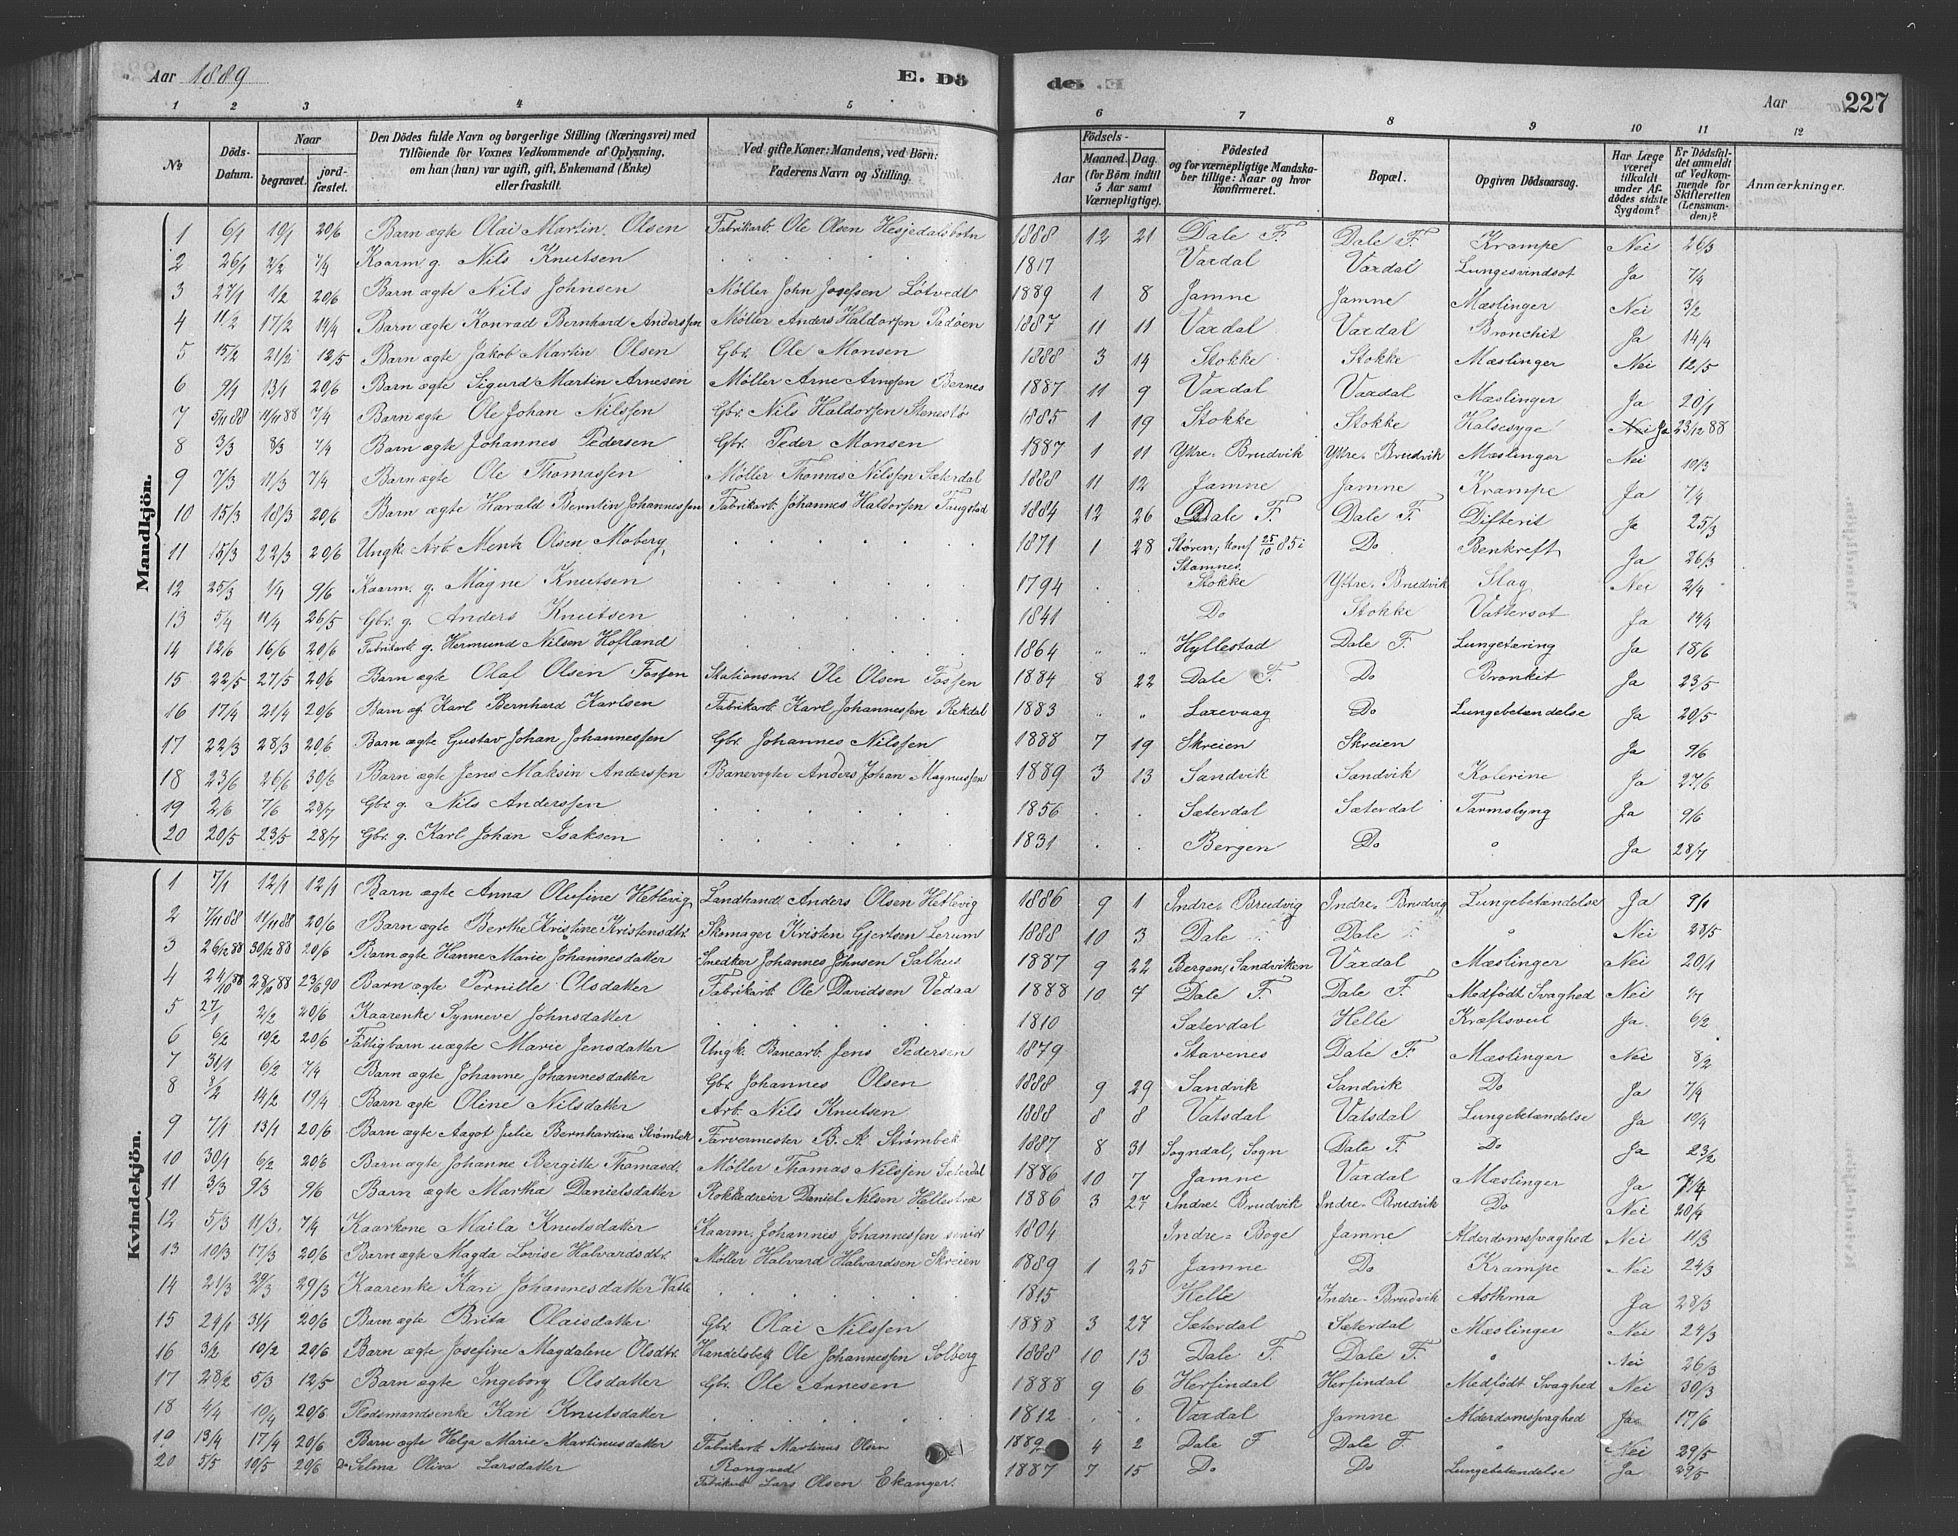 Aar 1889 E. Dö de. Aar 227
1 2 3 4 5 6 7 8 9 10 11 12
No. Döds-Datum. Naar begravet. jordfæstet. Den Dödes fulde Navn og borgerlige Stilling (Næringsvei) med Tilföiende for Voxnes Vedkommende af Oplysning, om han (hun) var ugift, gift, Enkemand (Enke) eller fraskilt. Ved gifte Koner: Mandens, ved Börn: Faderens Navn og Stilling. Födsels- Aar Maaned. Dag. (for Börn indtil 5 Aar samt Værnepligtige). Födested og for værnepligtige Mandskaber tillige: Naar og hvor konfirmeret. Bopæl. Opgiven Dödsaarsag. Har Læge været tilkaldt under Afdödes sidste Sygdom? Er Dödsfaldet anmeldt af Vedkommende for Skifteretten (Lensmanden)? Anmærkninger.
Mandkjön.
1 6/1 19/1 20/6 Barn ægte Olai Martin Olsen Fabrikarb. Ole Olsen Hesjedalsbotn 1888 12 21 Dale F. Dale F. Krampe Nei 26/3
2 26/1 2/2 7/4 Kaarm g. Nils Knutsen 1817 Vaxdal Vaxdal Lungesvindsot Ja 7/4
3 27/1 1/2 20/6 Barn ægte Nils Johnsen Møller John Josefsen Løtvedt 1889 1 8 Jamne Jamne Mæslinger Nei 3/2
4 11/2 17/2 14/4 Barn ægte Konrad Bernhard Anderssen Møller Anders Haldorsen Tadøen 1887 11 11 Vaxdal Vaxdal Bronchit Ja 14/4
5 15/2 21/2 12/5 Barn ægte Jakob Martin Olsen Gbr. Ole Monsen 1888 3 14 Stokke Stokke Mæslinger Nei 12/5
6 9/1 13/1 20/6 Barn ægte Sigurd Martin Arnesen Møller Arne Arnesen Bernes 1887 11 9 Vaxdal Vaxdal Mæslinger Ja 20/1
7 5/11 88 11/11 88 7/4 Barn ægte Ole Johan Nilssen Gbr. Nils Haldorsen Stenestø 1885 1 19 Stokke Stokke Halsesyge Nei Ja 23/12 88
8 3/3 8/3 7/4 Barn ægte Johannes Pedersen Gbr. Peder Monsen 1887 1 11 Yttre-Brudvik Yttre-Brudvik Mæslinger Nei 10/3
9 7/3 11/3 7/4 Barn ægte Ole Thomassen Møller Thomas Nilssen Sæterdal 1888 11 12 Jamne Jamne Krampe Ja 7/4
10 15/3 18/3 20/6 Barn ægte Harald Berntin Johannessen Fabrikarb. Johannes Haldorsen Faugstad 1884 12 26 Dale F. Dale F. Difterit Ja 25/3
11 15/3 22/3 20/6 Ungk. Arb. Menk Olsen Moberg 1871 1 28 Støren, konf 25/10 85 i Stamnes Do Benkreft Ja 26/3
12 25/3 1/4 9/6 Kaarm. g. Magne Knutsen 1794 Stokke Yttre-Brudvik Slag Nei 2/4
13 5/4 11/4 26/5 Gbr. g. Anders Knutsen 1841 Do Stokke Vattersot Ja 14/4
14 12/6 16/6 20/6 Fabrikarb g. Hermund Nilsen Hofland 1864 Hyllestad Dale F. Lungetæring Ja 18/6
15 22/5 27/5 20/6 Barn ægte Olal Olsen Fossen Stationsm. Ole Olsen Fossen 1884 8 22 Dale F. Do Bronkit Ja 23/5
16 17/4 21/4 20/6 Barn æg Karl Bernhard Karlsen Fabrikarb. Karl Johannessen Rekdal 1883 Laxevaag Do Lungebetændelse Ja 20/5
17 22/3 28/3 20/6 Barn ægte Gustav Johan Johannessen Gbr. Johannes Nilssen 1888 7 19 Skreien Skreien Ja 9/6
18 23/6 26/6 30/6 Barn ægte Jens Maksin Anderssen Banevogter Anders Johan Magnussen 1889 3 13 Sandvik Sandvik Kolerine Ja 27/6
19 2/6 7/6 28/7 Gbr g. Nils Anderssen 1856 Sæterdal Sæterdal Tarmslyng Ja 9/6
20 20/5 23/5 28/7 Gbr g. Karl Johan Isaksen 1831 Bergen Do " Ja 28/7
Kvindekjön.
1 7/1 12/1 12/1 Barn ægte Anna Olufine Hetlevig Landhandl. Anders Olsen Hetlevig 1886 9 1 Indre-Brudvig Indre-Brudvig Lungebetændelse Ja 9/1
2 7/11 88 11/11 88 20/6 Barn ægte Berthe Kristine Kristensdtr. Skomager Kristen Gjertsen Lerum 1888 10 3 Dale Dale " Nei 28/5
3 26/12 88 30/12 88 20/6 Barn ægte Hanne Marie Johannesdatter Snedker Johannes Johnsen Salhus 1887 9 22 Bergen, Sandviken Vaxdal Mæslinger Nei 20/1
4 24/10 88 28/10 88 23/6 90 Barn ægte Pernille Olsdatter Fabrikarb. Ole Davidsen Vedaa 1888 10 7 Dale F. Dale F. Medfødt Svaghed Nei
5 27/1 2/2 20/6 Kaarenke Synneve Johnsdatter 1810 Sæterdal Helle Kræftsvil Ja 6/2
6 6/2 10/2 20/6 Fattigbarn uægte Marie Jensdatter Ungk. Banearb. Jens Pedersen 1879 Stavenes Dale F. Mæslinger Nei 8/2
7 31/1 6/2 7/4 Barn ægte Johanne Johannesdatter Gbr. Johannes Olsen 1888 9 29 Sandvik Sandvik Do Ja 7/4
8 14/2 19/4 Barn ægte Oline Nilsdatter Arb. Nils Knutsen 1888 8 8 Vatsdal Vatsdal Lungebetændelse Ja 19/4
9 7/1 13/1 20/6 Barn ægte Aagot Julie Bernhardine Strømbek Farvermester B. A. Strømbek 1887 8 31 Sogndal, Sogn Dale F. Do Ja 23/2
10 30/1 6/2 20/6 Barn ægte Johanne Bergitte Thomasd. Møller Thomas Nilssen Sæterdal 1886 10 7 Jamne Vaxdal Mæslinger Ja 7/4
11 3/3 9/3 9/6 Barn ægte Martha Danielsdatter Rokkedreier Daniel Nilsen Hellestræ 1886 3 27 Indre-Brudvik Indre-Brudvik Do Nei 20/4
12 5/3 11/3 7/4 Kaarkone Maila Knutsdatter Kaarm. Johannes Johannessen senior 1804 Indre-Boge Jamne Alderdomssvaghed Nei 11/3
13 10/3 17/3 20/6 Barn ægte Magda Lovise Halvardsdtr. Møller Halvard Halvardsen Skreien 1889 1 25 Jamne Do Krampe Nei 24/3
14 21/3 29/3 29/3 Kaarenke Kari Johannesdatter Vatle 1815 Helle Indre-Brudvik Asthma Ja 28/3
15 24/1 31/1 20/6 Barn ægte Brita Olaisdatter Gbr. Olai Nilssen 1888 3 27 Sæterdal Sæterdal Mæslinger Nei 24/3
16 3/2 10/2 20/6 Barn ægte Josefine Magdalene Olsdtr. Handelsbetj. Ole Johannessen Solberg 1888 10 13 Dale F. Dale F. " Nei 26/3
17 28/2 5/3 12/5 Barn ægte Ingeborg Olsdatter Gbr. Ole Arnesen 1888 9 6 Herfindal Herfindal Medfödt Svaghed Nei 30/3
18 4/4 10/4 20/6 Plodsmandsenke Kari Knutsdatter 1812 Vaxdal Jamne Alderdomssvaghed Ja 17/6
19 13/4 17/4 20/6 Barn ægte Helga Marie Martinusdatter Fabrikarb. Martinus Olsen Rongved 1889 4 2 Dale F Dale F " Nei 29/5
20 5/5 10/5 20/6 Do Selma Oliva Larsdatter Fabrikarb Lars Olsen Ekanger. 1887 7 15 Do Do Lungebetændelse Ja 29/5